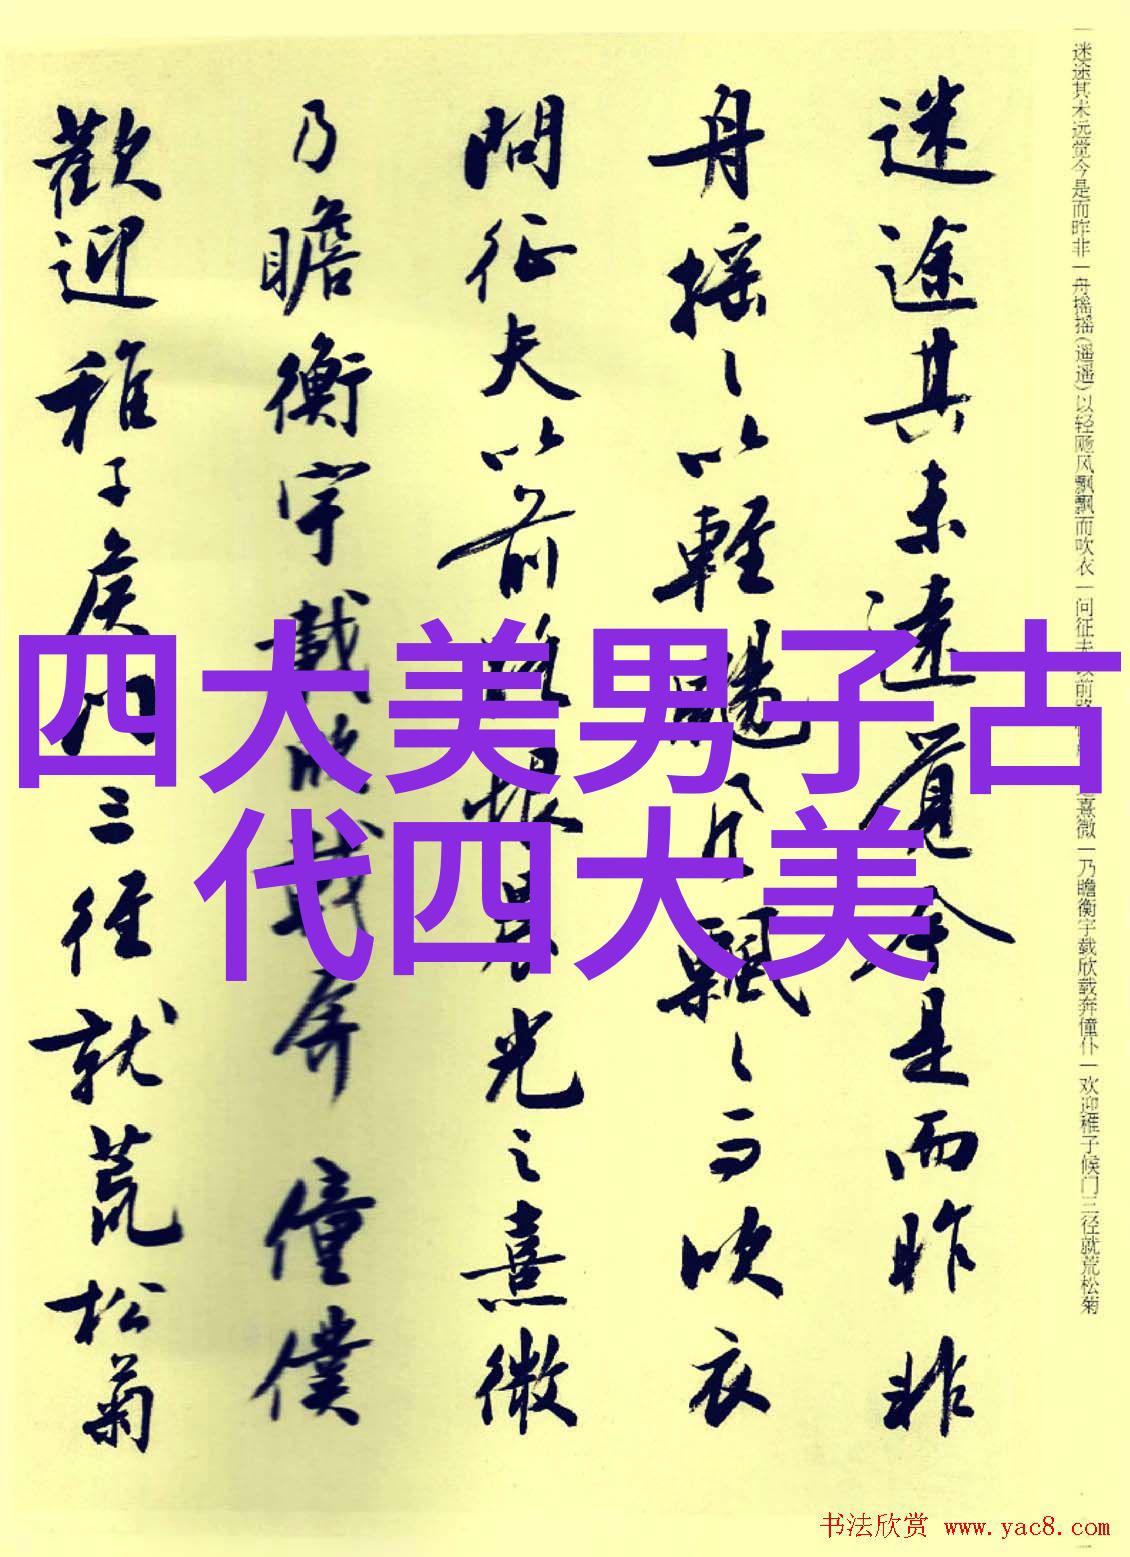 迷途其未远觉今是而昨非
舟摇摇(遥遥)以轻飏风飘飘而吹衣
问征夫以前路
熹微
乃瞻衡宇载欣载奔僮仆
欢迎稚子候门三径就荒松菊
迷途其未遠覺今是而昨非
舟摇〻以輕颺風飄〻而吹衣
問征夫以前路恨晨光之熹微
乃瞻衡宇載欣載奔僮僕
歡迎稚子候門三徑就荒松菊
四大美男子古
代四大美
书法欣赏 www.yac8.com